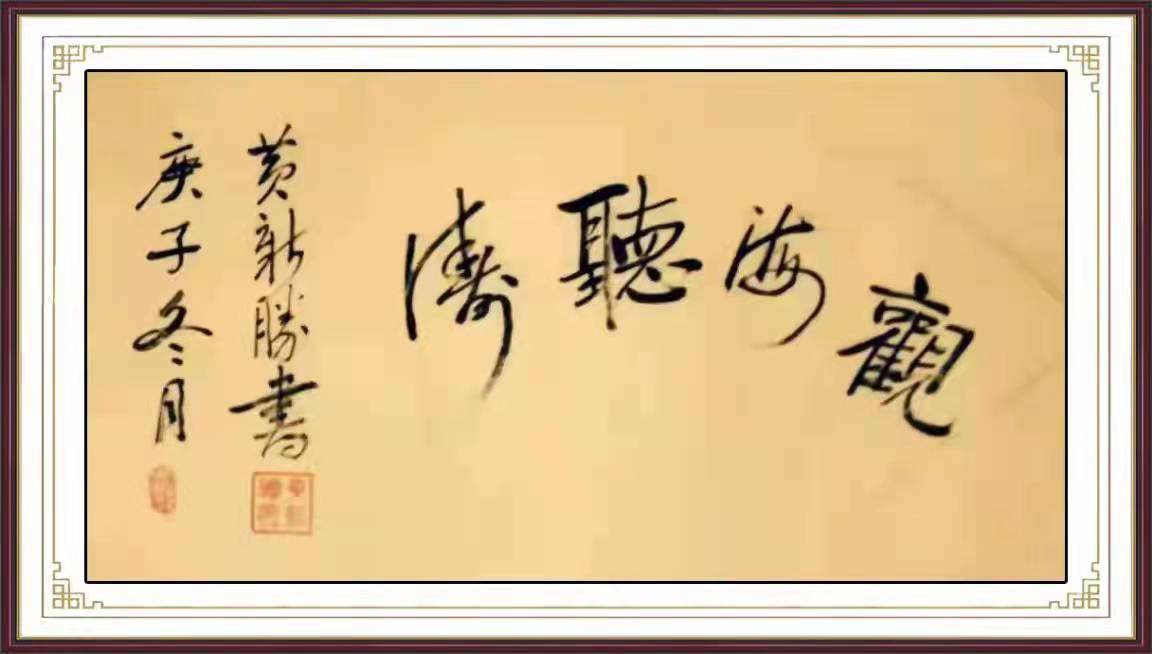 觀海聽濤
黄新勝書
庚子冬月